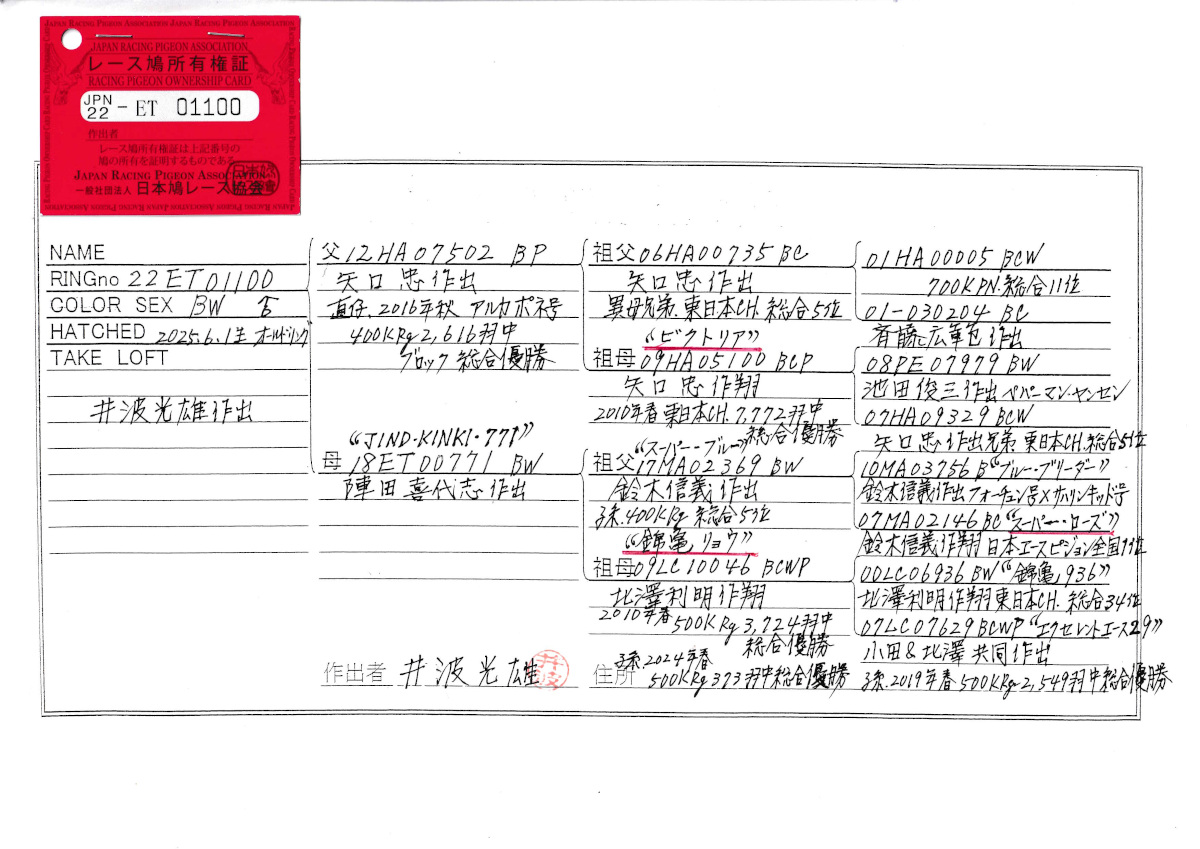 JAPAN RACING PIGEON ASSOCIATION JAPAN RACING PIGEON ASSOCIATION
JAPAN RACING PIGEON ASSOCIATION
レース鳩所有権証
RACING PIGEON OWNERSHIP CARD
JPN 22 - ET 01100
作出者
レース鳩所有権証は上記番号の
鳩の所有を証明するものである。
JAPAN RACING PIGEON ASSOCIATION
一般社団法人 日本鳩レース協会
NAME
RINGno 22ET01100
COLOR SEX BW
HATCHED 2025.6.1生 オールドリング
TAKE LOFT
井波光雄作出
父 12HA07502 BP
矢口 忠作出
直仔. 2016年秋 アルカポネ号
400KRg 2,616羽中
ブロック 総合優勝
"JIND・KINKI・771"
母 18ET00771 BW
陣田 喜代志 作出
作出者 井波光雄
井波
祖父 06HA00735 BC
矢口 忠作出
異母兄弟. 東日本CH. 総合5位
"ビクトリア"
祖母 09HA05100 BCP
矢口 忠 作翔
2010年春 東日本CH. 7,772羽中
総合優勝
"スーパー・ブルー"
祖父 17MA02369 BW
鈴木信義作出
孫. 400KRg 総合5位
"錦亀リョウ"
祖母 09LC10046 BCWP
北澤利明作翔
2010年春 500KRg 3,724羽中
総合優勝
住所
孫 2024年春
500KRg 373羽中総合優勝
01HA00005 BCW
700KPN. 総合11位
01-030204 BC
斉藤広草也作出
08PE07979 BW
池田俊三作出 ペパーマン・ヤンセン
07HA09329 BCW
矢口 忠作出兄弟 東日本CH. 総合5位
10MA03756 B "ブルー・ブリーダー"
鈴木信義作出 フォーチュン号×サハリンキッド号
07MA02146 BC "スーパー・ローズ"
鈴木信義作翔 日本エースピジョン全国1位
00LC06936 BW "錦亀936"
北澤利明作翔 東日本CH. 総合34位
07LC07629 BCWP "エクセレントエース29"
小田&北澤 共同作出
孫. 2019年春 500KRg 2,549羽中総合優勝